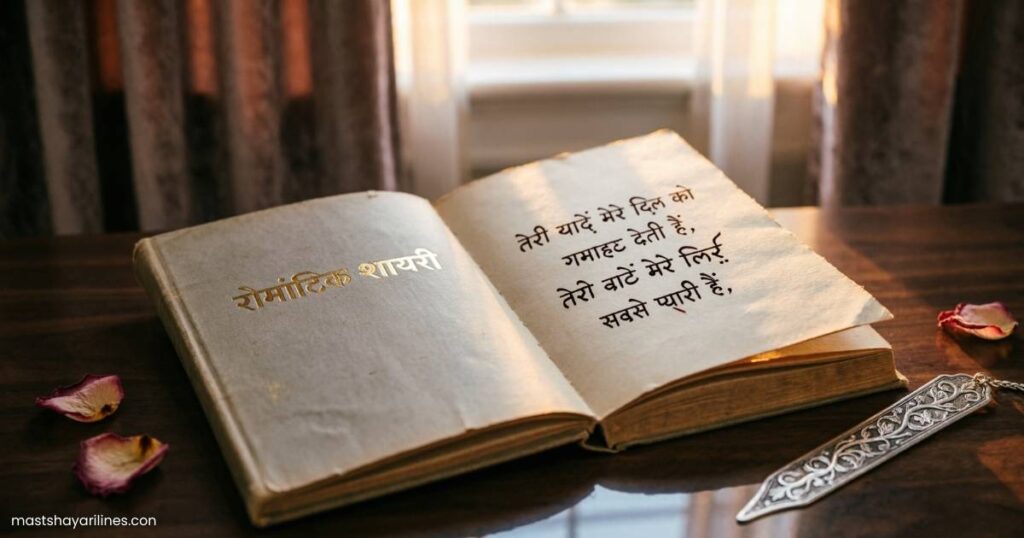 रोमांटिक शायरी
तेरी यादें मेरे दिल को
गमाहट देती हैं,
तेरो वाटें मेरे लिए
सबसे प्यारी हैं,
mastshayarilines.com